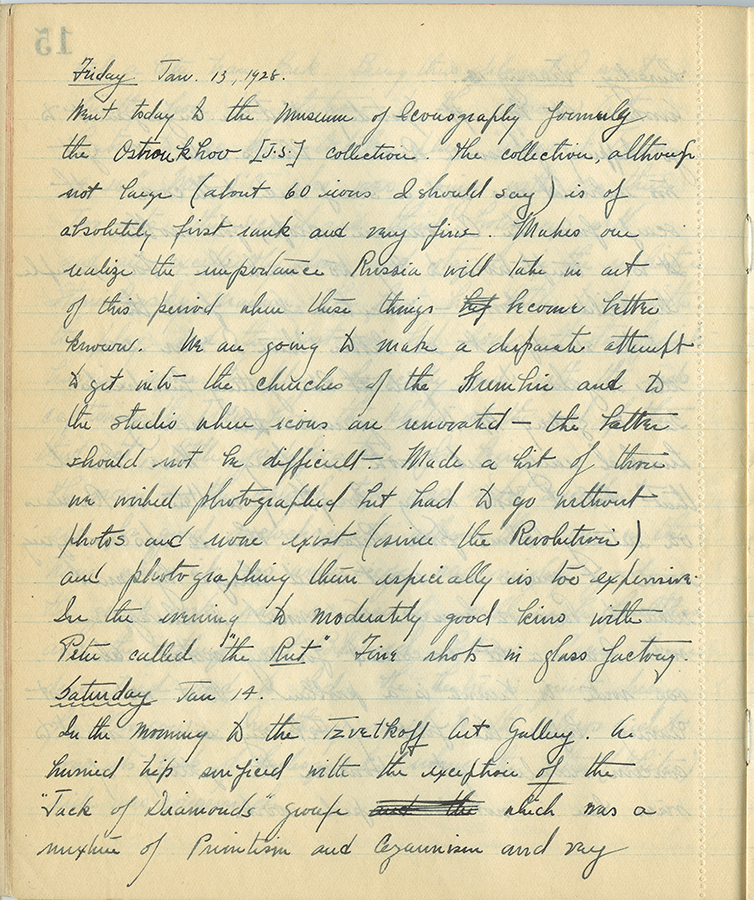 15
Friday Jan. 13, 1928.
Went today to the Museum of Iconography formerly
the Ostroukhov [J.S.] collection. The collection, although
not large (about 60 icons I should say) is of
absolutely first rank and very fine. Makes one
realize the importance Russia will take in art
of this period when these things become better
known. We are going to make a desparate attempt
to get into the churches of the Kremlin and to
the studio where icons are renovated – the latter
should not be difficult. Made a list of those
we wished photographed but had to go without
photos and none exist (since the Revolution)
and photographing them especially is too expensive.
In the evening to moderately good kino with
Peter called "the Rut" Fine shots in glass factory.
Saturday Jan 14.
In the morning to the Tzvetkoff Art Gallery. A
hurried trip sufficed with the exception of the
"Jack of Diamonds" group and the which was a
mixture of Primitism and Cezannism and very